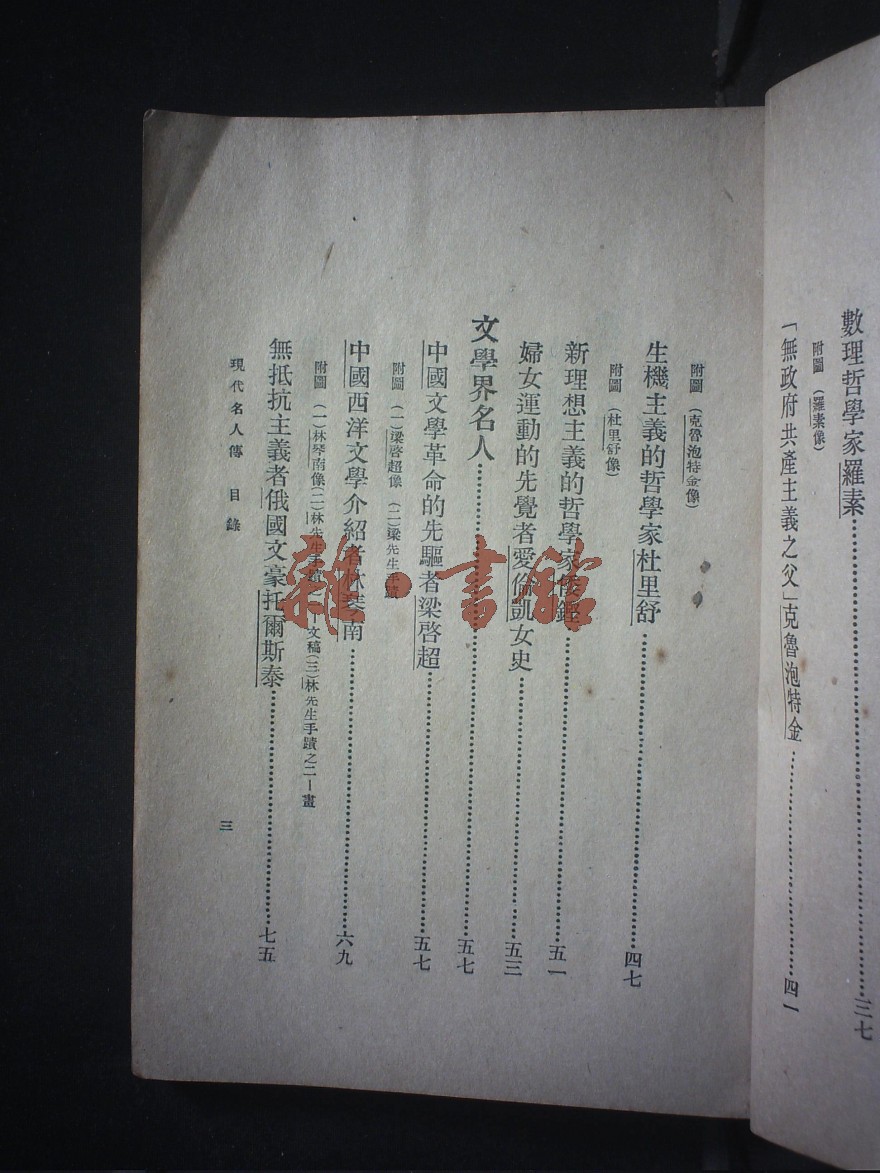 數理哲學家羅素……三七
附圖（羅素像）
「無政府共產主義之父」克魯泡特金……四一
附圖（克魯泡特金像）
生機主義的哲學家杜里舒……四七
附圖（杜里舒像）
新理想主義的哲學家倭鏗……五一
婦女運動的先覺者愛倫凱女史……五三
文學界名人……五七
中國文學革命的先驅者梁啓超……五七
附圖（一）梁啓超像（二）梁先生手蹟
中國西洋文學介紹者林琴南……六九
附圖（一）林琴南像（二）林先生手蹟之一－文稿（三）林先生手蹟之二－畫
無抵抗主義者俄國文豪托爾斯泰……七五
現代名人傳　目錄
三
雜·書館